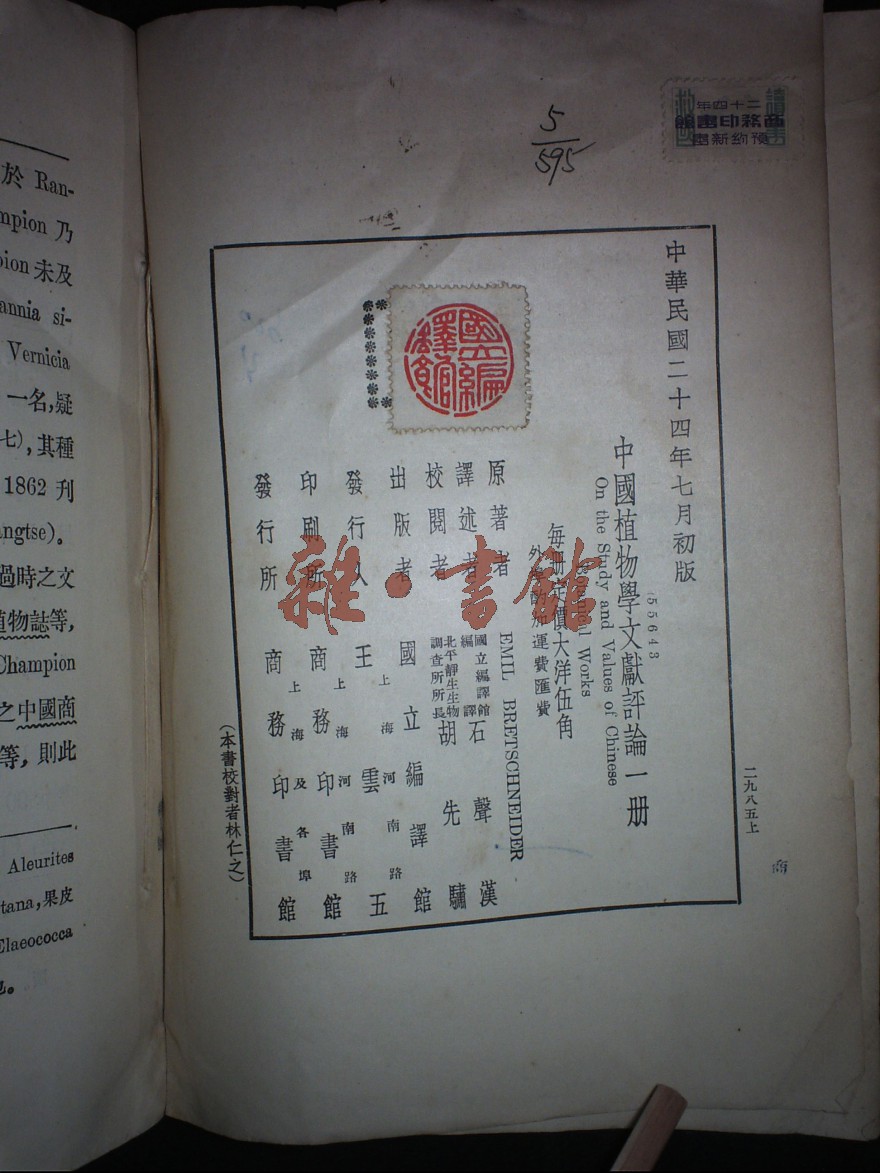 5
595
二十四年
商務印書館
預約新書
中華民國二十四年七月初版
(55643)
中國植物學文獻評論一册
On the Study and Values of Chinese
Botanical Works
每册定價大洋伍角
外埠酌加運費匯費
原著者 EMIL BRETSCHNEIDER
譯述者 國立編譯館編譯 石聲漢
校閱者 北平靜生生物調查所所長 胡先驌
出版者 國立編譯館
發行人 王雲五
上海河南路
印刷所 商務印書館
上海河南路
發行所 商務印書館
上海及各埠
(本書校對者林仁之)
二九八五上
商
國立編譯館
雜·書館
於 Ran-
mpion 乃
pion 未及
annia si-
Vernicia
一名,疑
七),其種
1862 刊
angtse)。
過時之文
植物誌等,
Champion
之中國商
等,則此
Aleurites
tana,果皮
Elaeococca
也。